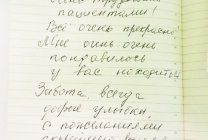 пациентами!
Всё очень прекрасно!
Мне очень-очень
понравилось
у вас находиться
Забота, всегда
добрые улыбки,
С пожеланиями